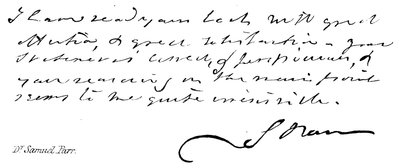 I have read your book with great
attention, & great satisfaction – your
statement is correct, & perspicuous, &
your reasoning on the main point
seems to me quite invincible.
S. Parr
Dr. Samuel Parr.